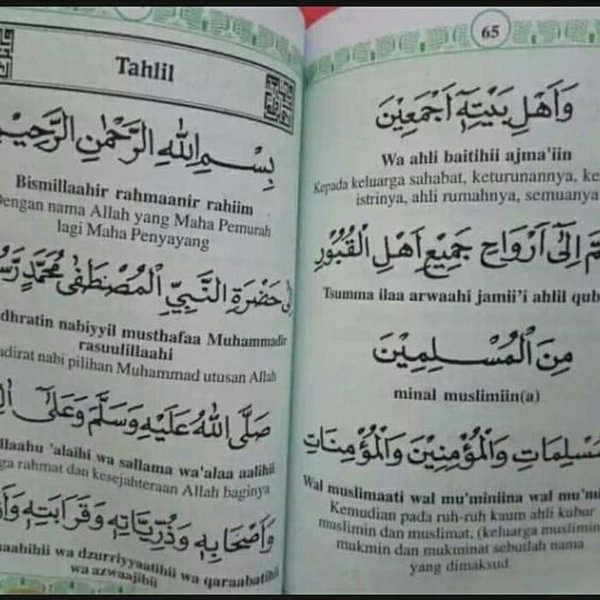 Tahlil
بِسْمِ اللهِ الرَّحْمٰنِ الرَّحِيْمِ
Bismillaahir rahmaanir rahiim
Dengan nama Allah yang Maha Pemurah
lagi Maha Penyayang
حَضْرَةِ النَّبِيِّ الْمُصْطَفٰى مُحَمَّدٍ
nabiyyil musthafaa Muhammadir
rasuulillaahi
nabi pilihan Muhammad utusan Allah
صَلَّى اللهُ عَلَيْهِ وَسَلَّمَ وَعَلٰى
'alaihi wa sallama wa'alaa aalihii
rahmat dan kesejahteraan Allah baginya
وَاَصْحَابِهٖ وَذُرِّيَّاتِهٖ وَقَرَابَتِهٖ
wa dzurriyyaatihii wa qaraabatihii
wa azwaajihii
65
وَاَهْلِ بَيْتِهٖٓ اَجْمَعِيْنَ
Wa ahli baitihii ajma'iin
Kepada keluarga sahabat, keturunannya,
istrinya, ahli rumahnya, semuanya
اِلٰى اَرْوَاحِ جَمِيْعِ اَهْلِ الْقُبُوْرِ
Tsumma ilaa arwaahi jamii'i ahlil
مِنَ الْمُسْلِمِيْنَ
minal muslimiin(a)
وَالْمُؤْمِنِيْنَ وَالْمُؤْمِنَاتِ
Wal muslimaati wal mu'miniina wal
Kemudian pada ruh-ruh kaum ahli kubur
muslimin dan muslimat, (keluarga muslimin
mukmin dan mukminat sebutlah nama
yang dimaksud